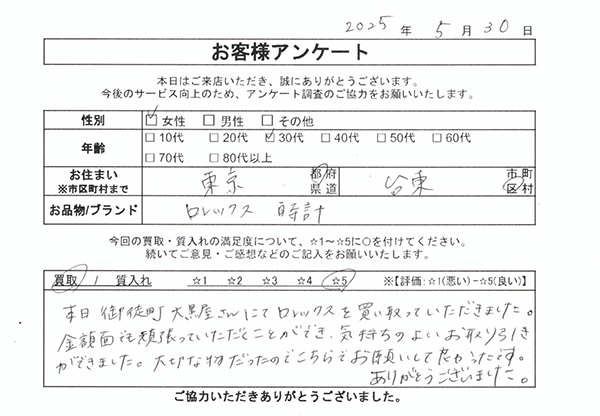 2025 年 5 月 30 日
お客様アンケート
本日はご来店いただき、誠にありがとうございます。
今後のサービス向上のため、アンケート調査のご協力をお願いいたします。
性別 ☑女性 □男性 □その他
年齢 □10代 □20代 ☑30代 □40代 □50代 □60代
□70代 □80代以上
お住まい ※市区町村まで 東京 都府県道 台東 市町区村
お品物/ブランド ロレックス 時計
今回の買取・質入れの満足度について、☆1〜☆5に〇を付けてください。
続いてご意見・ご感想などのご記入をお願いします。
買取 / 質入れ ☆1 ☆2 ☆3 ☆4 ☆5 ※【評価:☆1(悪い)－☆5(良い)】
本日 御徒町 大黒屋さんにてロレックスを買い取っていただきました。
金額面でも頑張っていただくことができ、気持ちのよいお取り引き
ができました。大切な物だったのでこちらでお願いして良かったです。
ありがとうございました。
ご協力いただきありがとうございました。